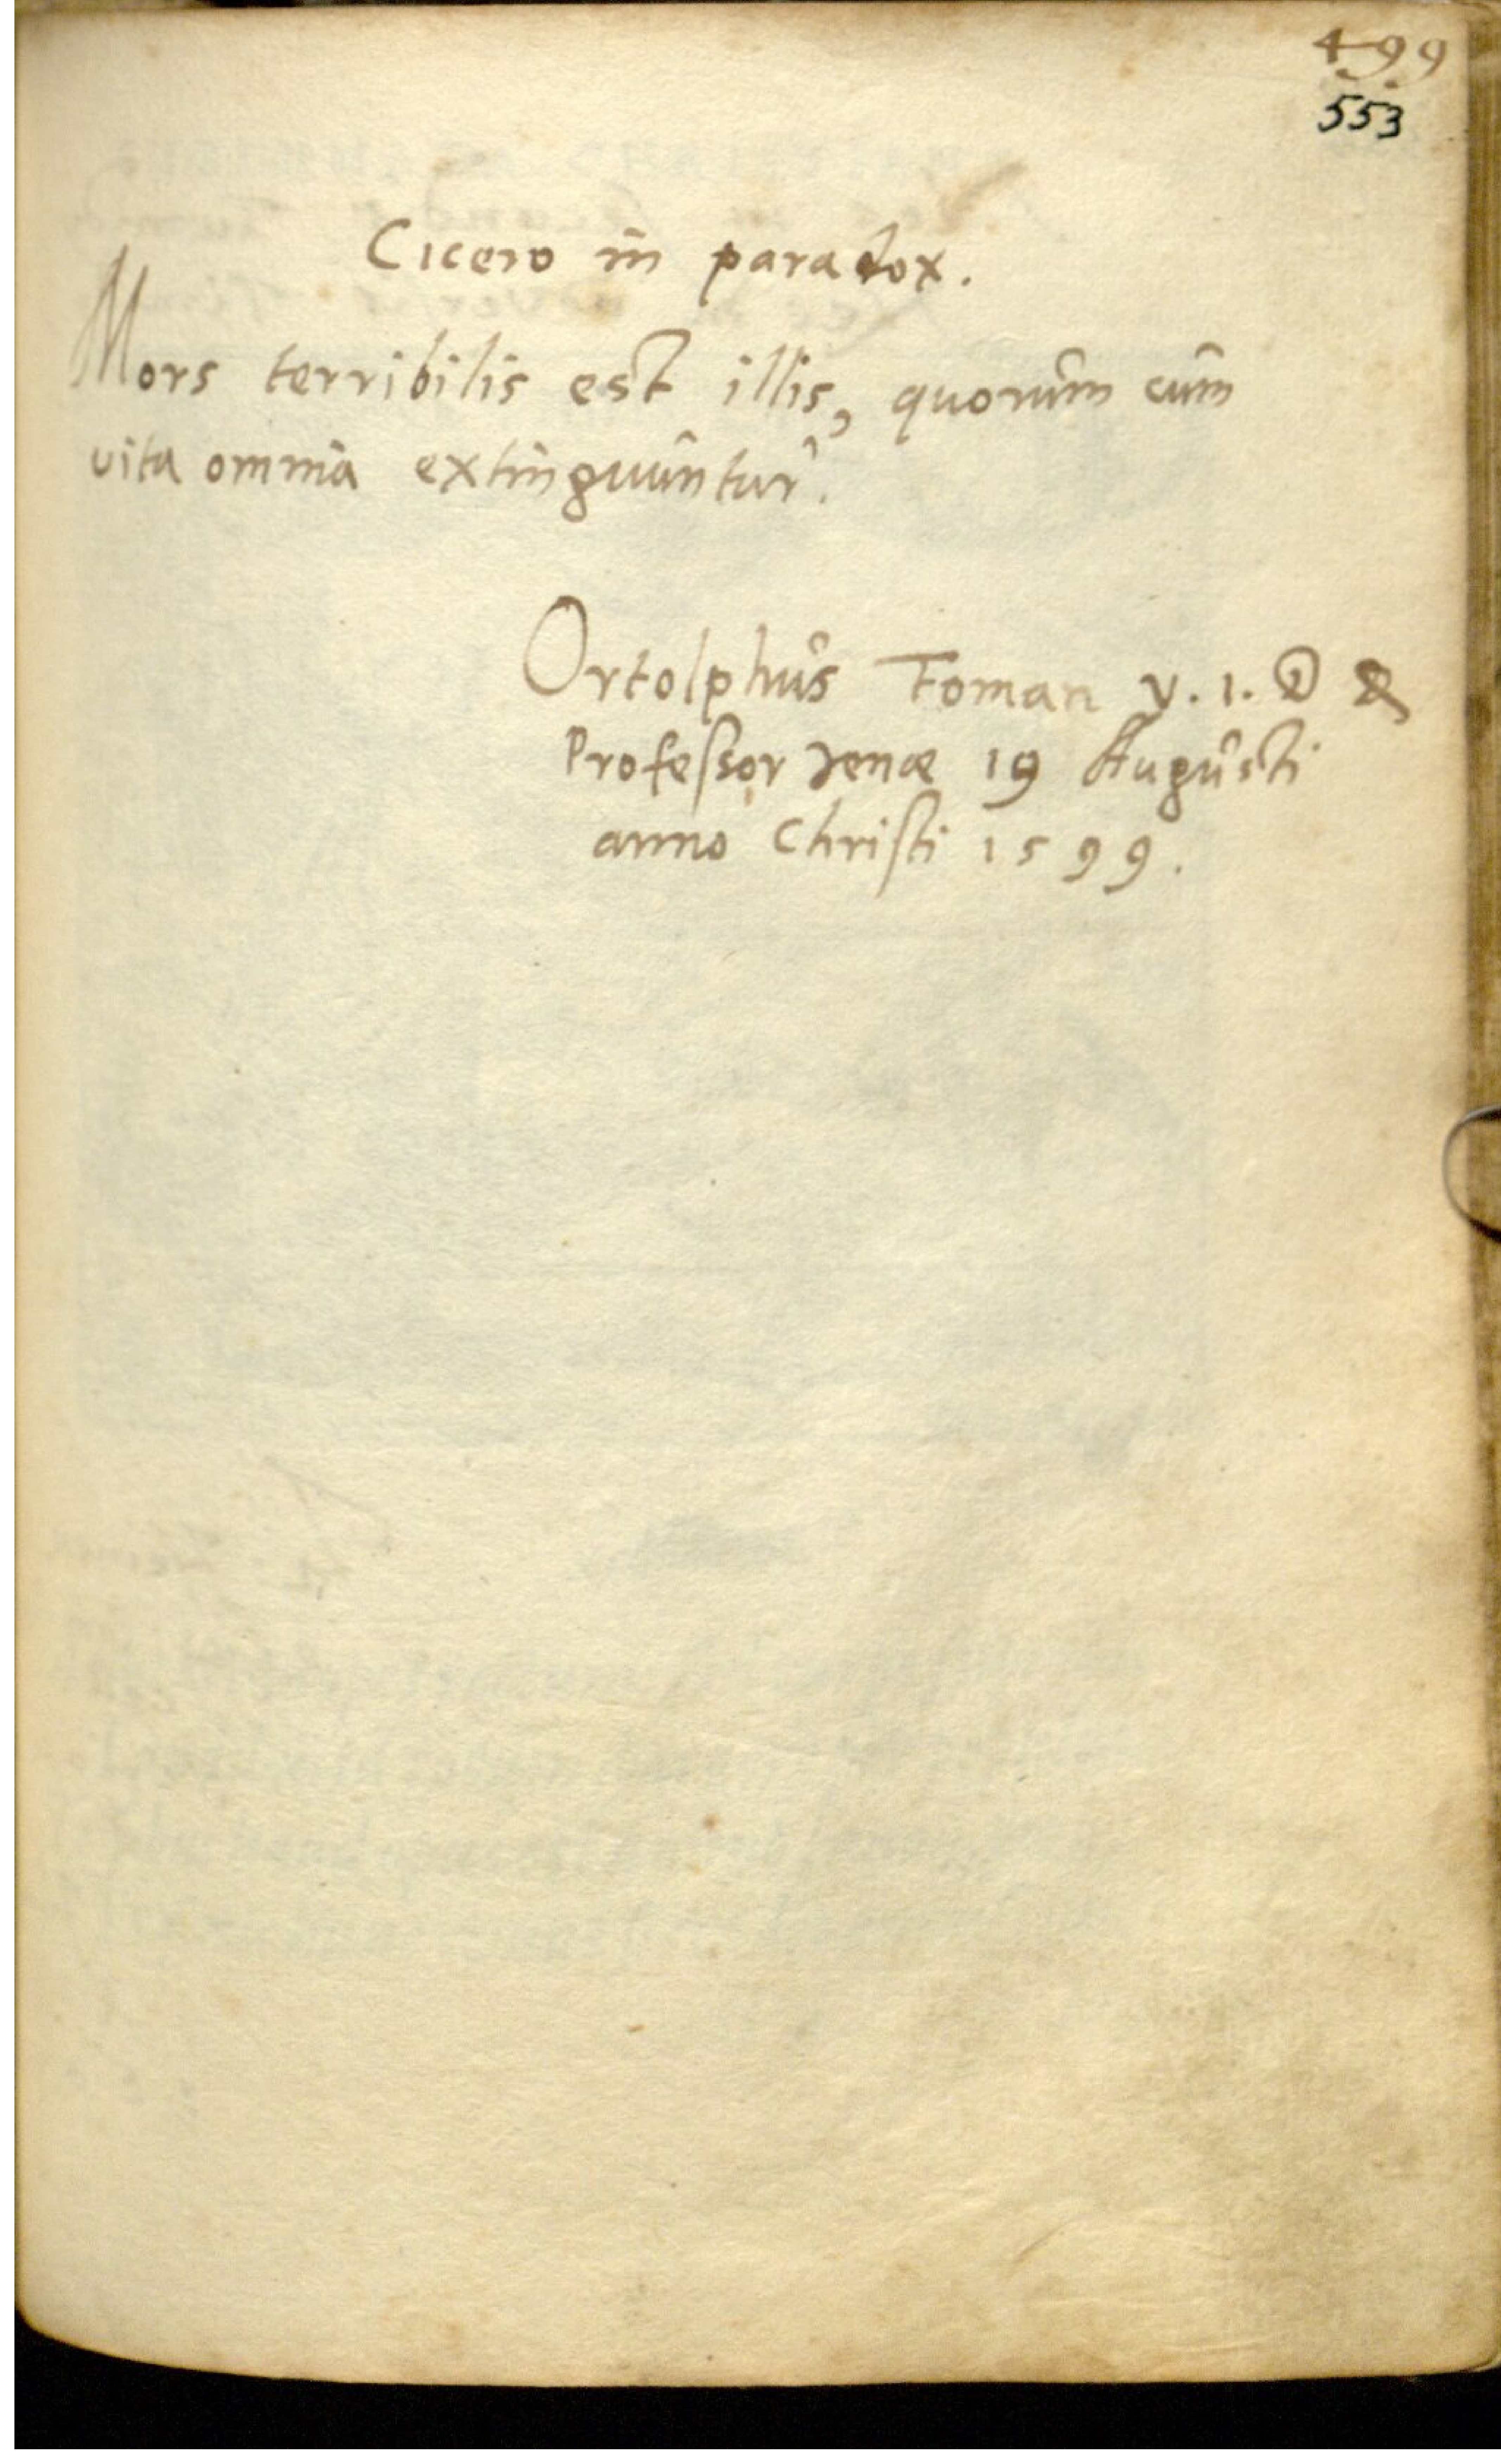 499
553
Cicero in paradox.
Mors terribilis est illis, quorûm cûm
vita omnia extinguûntur.
Ortolphûs Foman V. I. D &
Profeſsor Jenæ 19 Augûsti
anno Chriſti 1599.